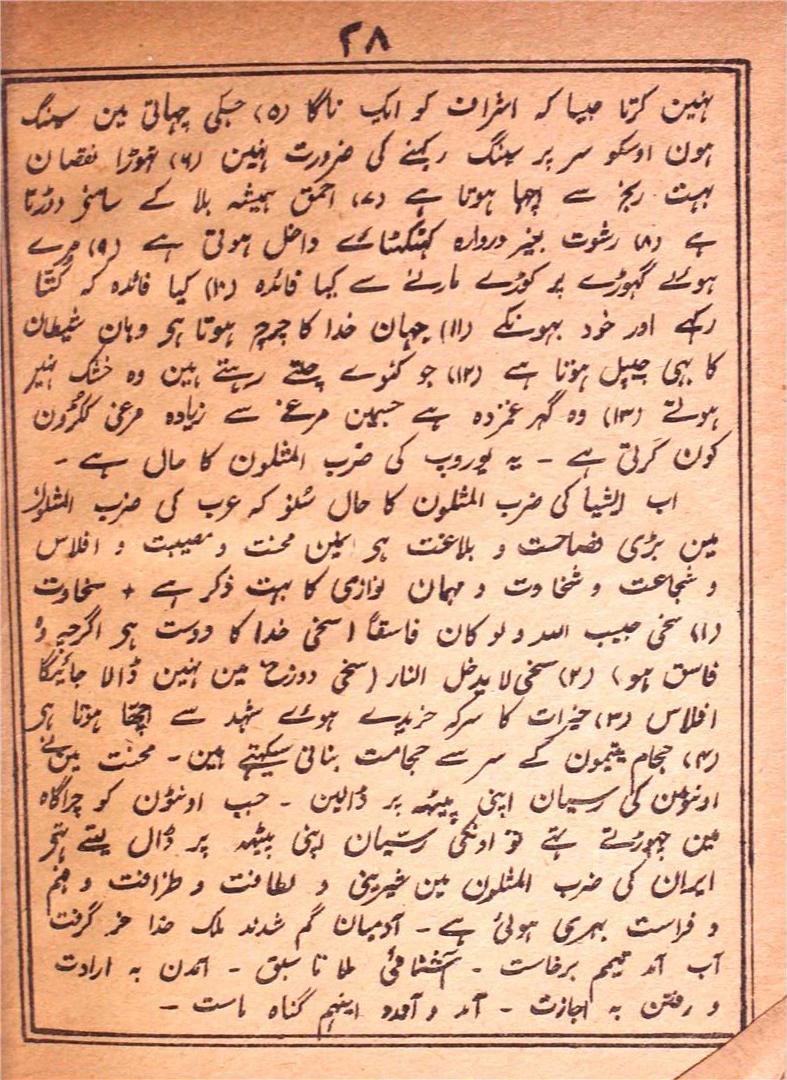 ۲۸
نہین کرتا جیسا کہ اشراف کو ایک ناگا (۵) جسکی چہاتی مین سینگ
ہون اوسکو سر پر سینگ رکہنے کی ضرورت نہین (۶) تہوڑا نقصان
بہت رنج سے اچہا ہوتا ہے (۷) احمق ہمیشہ بلا کے سامنے دوڑتا
ہے (۸) رشوت بغیر دروازہ کہٹکہٹائے داخل ہوتی ہے (۹) مرے
ہوئے گہوڑے پر کوڑے مارنے سے کیا فائدہ (۱۰) کیا فائدہ کہ کتا
رکہے اور خود بہونکے (۱۱) جہان خدا کا چرچ ہوتا ہی وہان شیطان
کا بہی چیپل ہوتا ہے (۱۲) جو کنوے چلتے رہتے ہین وہ خشک نہیں
ہوتے (۱۳) وہ گہر غمزدہ ہے جسمین مرغے سے زیادہ مرغی ککڑون
کون کرتی ہے - یہ یوروپ کی ضرب المثلون کا حال ہے -
اب ایشیا کی ضرب المثلون کا حال سُنو کہ عرب کی ضرب المثلون
مین بڑی فصاحت و بلاغت ہی لیکن محنت و مصیبت و افلاس
و شجاعت و سخاوت و مہمان نوازی کا بہت ذکر ہے + سخاوت
(۱) سخی حبیب اللہ و لو کان فاسقاً (سخی خدا کا دوست ہی اگرچہ وہ
فاسق ہو) (۲) سخی لا یدخل النار (سخی دوزخ مین نہین ڈالا جائیگا
افلاس (۳) خیرات کا سرکہ خریدے ہوے شہد سے اچہا ہوتا ہی
(۴) حجام یتیمون کے سر سے حجامت بنانی سیکہتے ہین - محنت مین نے
اونٹون کی رسیان اپنی پیٹہہ پر ڈالین - جب اونٹون کو چراگاہ
مین چہوڑتے ہے تو اونکی رسیان اپنی پیٹہہ پر ڈال لیتے ہتے
ایران کی ضرب المثلون مین شیرینی و لطافت و ظرافت و فہم
و فراست بہری ہوئی ہے - آدمیان گم شدند ملک خدا خر گرفت
آب آمد تیمم برخاست - آشنائی ملا تا سبق - آمدن بہ ارادت
و رفتن بہ اجازت - آمد و آورد اینہم گناہ ماست -